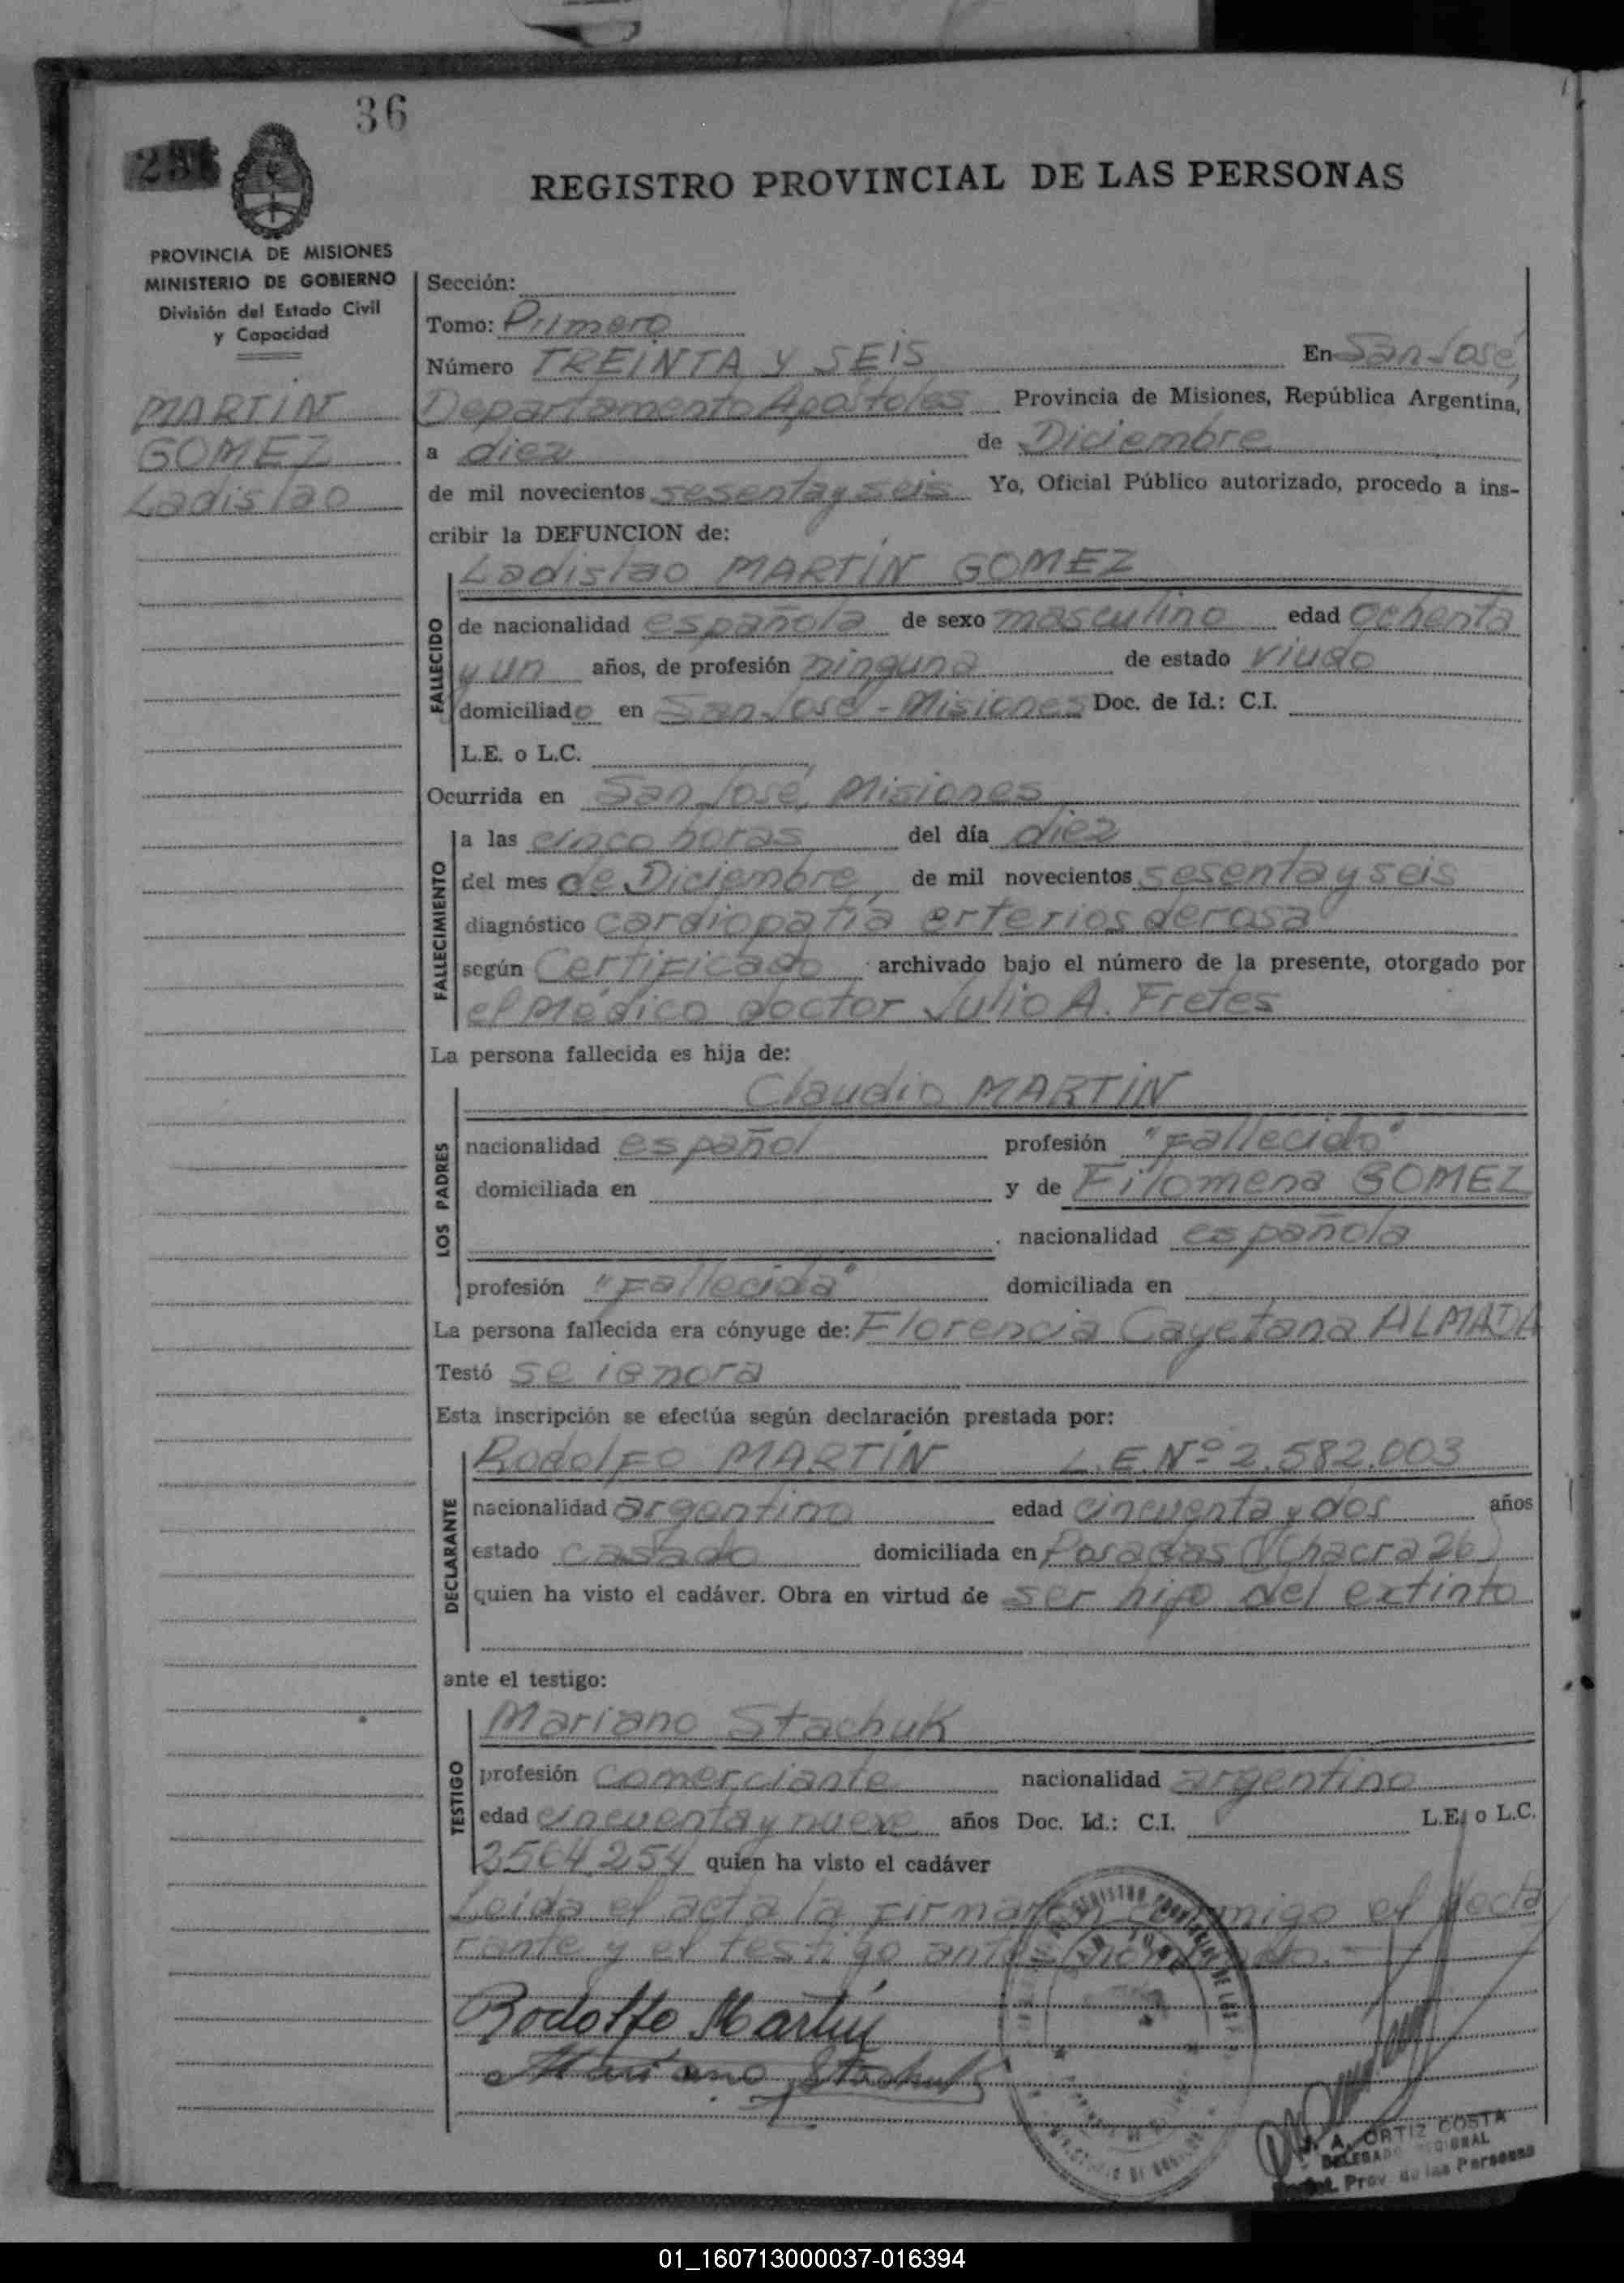 36
REGISTRO PROVINCIAL DE LAS PERSONAS
PROVINCIA DE MISIONES
MINISTERIO DE GOBIERNO
División del Estado Civil
y Capacidad
MARTIN
GOMEZ
Ladislao
Sección:
Tomo: Primero
Número TREINTA Y SEIS En San José,
Departamento Apóstoles Provincia de Misiones, República Argentina,
a diez de Diciembre
de mil novecientos sesenta y seis Yo, Oficial Público autorizado, procedo a ins-
cribir la DEFUNCION de:
Ladislao MARTIN GOMEZ
FALLECIDO
de nacionalidad española de sexo masculino edad ochenta
y un años, de profesión ninguna de estado viudo
domiciliado en San José - Misiones Doc. de Id.: C.I.
L.E. o L.C.
Ocurrida en San José, Misiones
FALLECIMIENTO
a las cinco horas del día diez
del mes de Diciembre de mil novecientos sesenta y seis
diagnóstico cardiopatía erteriosderosa
según Certificado archivado bajo el número de la presente, otorgado por
el Médico doctor Julio A. Fretes
La persona fallecida es hija de:
LOS PADRES
Claudio MARTIN
nacionalidad español profesión "Fallecido"
domiciliada en y de Filomena GOMEZ
nacionalidad española
profesión "Fallecida" domiciliada en
La persona fallecida era cónyuge de: Florencia Cayetana ALMADA
Testó se ignora
Esta inscripción se efectúa según declaración prestada por:
DECLARANTE
Rodolfo MARTIN L.E.Nº 2.582.003
nacionalidad argentino edad cincuenta y dos años
estado casado domiciliada en Posadas (Chacra 26)
quien ha visto el cadáver. Obra en virtud de ser hijo del extinto
ante el testigo:
TESTIGO
Mariano Stachuk
profesión comerciante nacionalidad argentino
edad cincuenta y nueve años Doc. Id.: C.I. L.E. o L.C.
3564254 quien ha visto el cadáver
Leida el acta la firman conmigo el decla
rante y el testigo antes nombrado.-
Rodolfo Martin
Mariano Stachuk
A. ORTIZ COSTA
DELEGADO REGIONAL
Prov. de las Personas
01_160713000037-016394